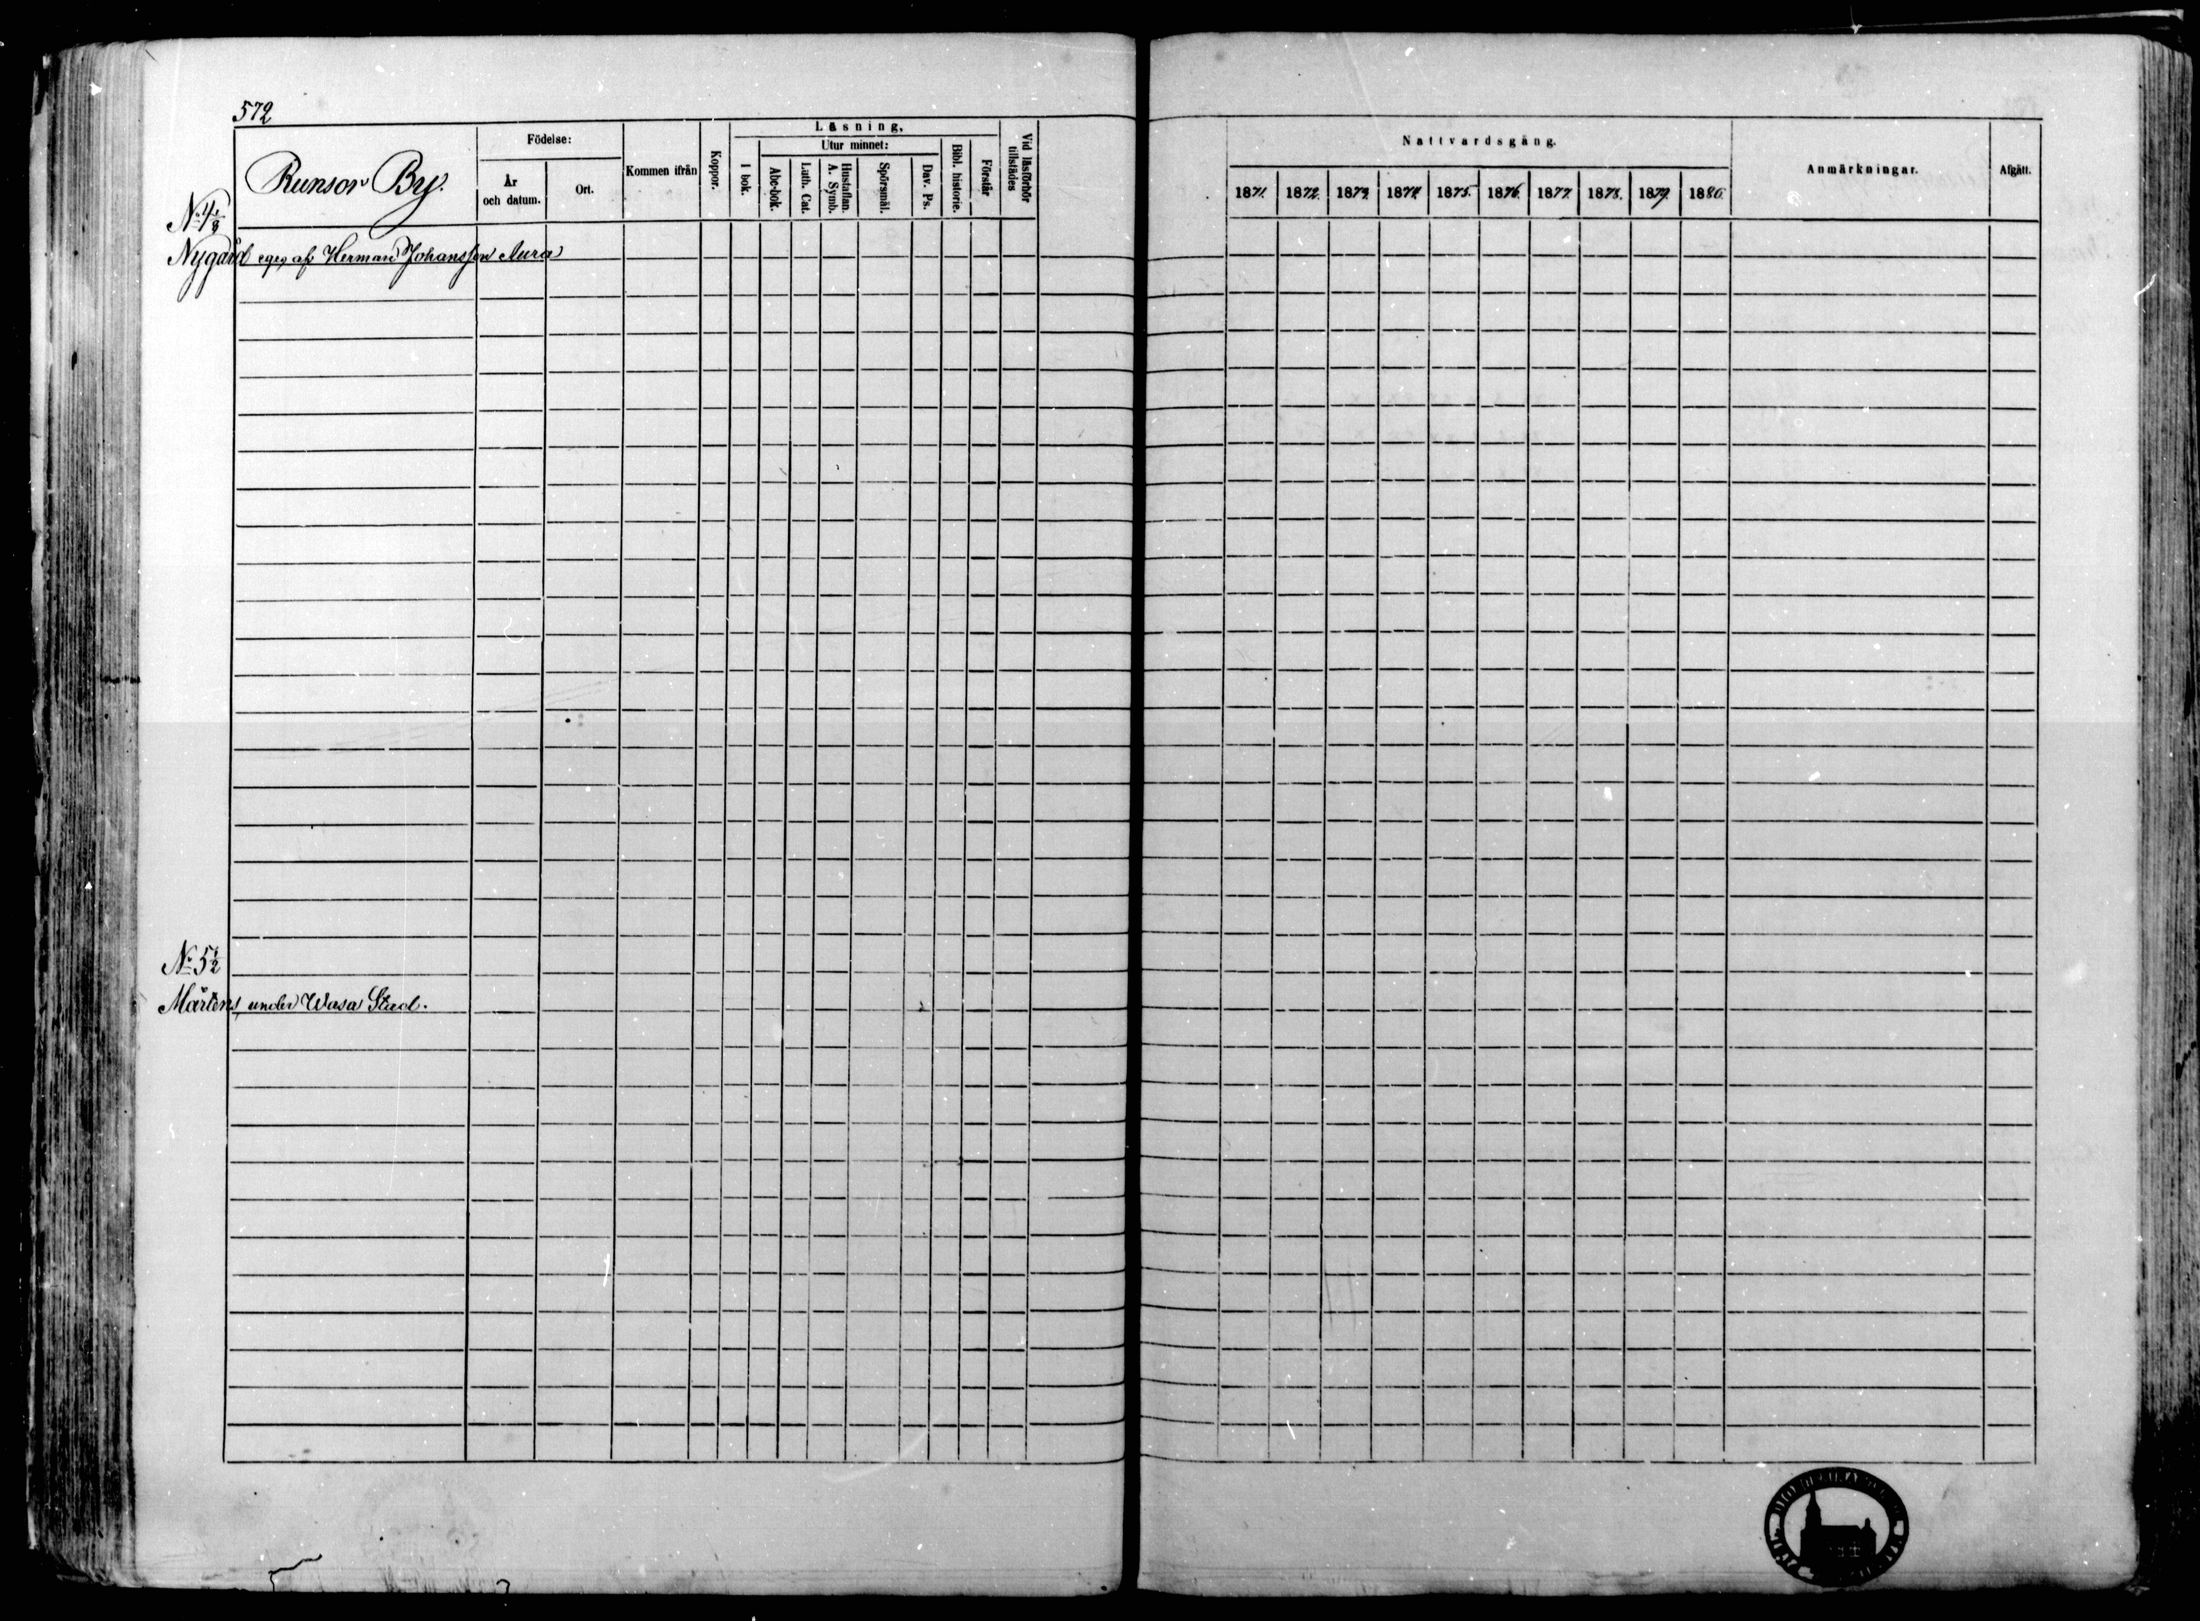 572
Runsor By.
Födelse:
År och datum.
Ort.
Kommen ifrån
Koppor.
Läsning,
I bok.
Utur minnet:
Abc-bok.
Luth. Cat.
Hustaflan.
A. Symb.
Spörsmål.
Dav. Ps.
Bibl. historie.
Förstår
Vid läsförhör
tillstädes
Nattvardsgång.
1871. 1872. 1873. 1874. 1875. 1876. 1877. 1878. 1879. 1880.
Anmärkningar.
Afgått.
No 4
Nygård eges af Herman Johansson Aura
No 5 1/2
Mårtens, under Wasa Stad.